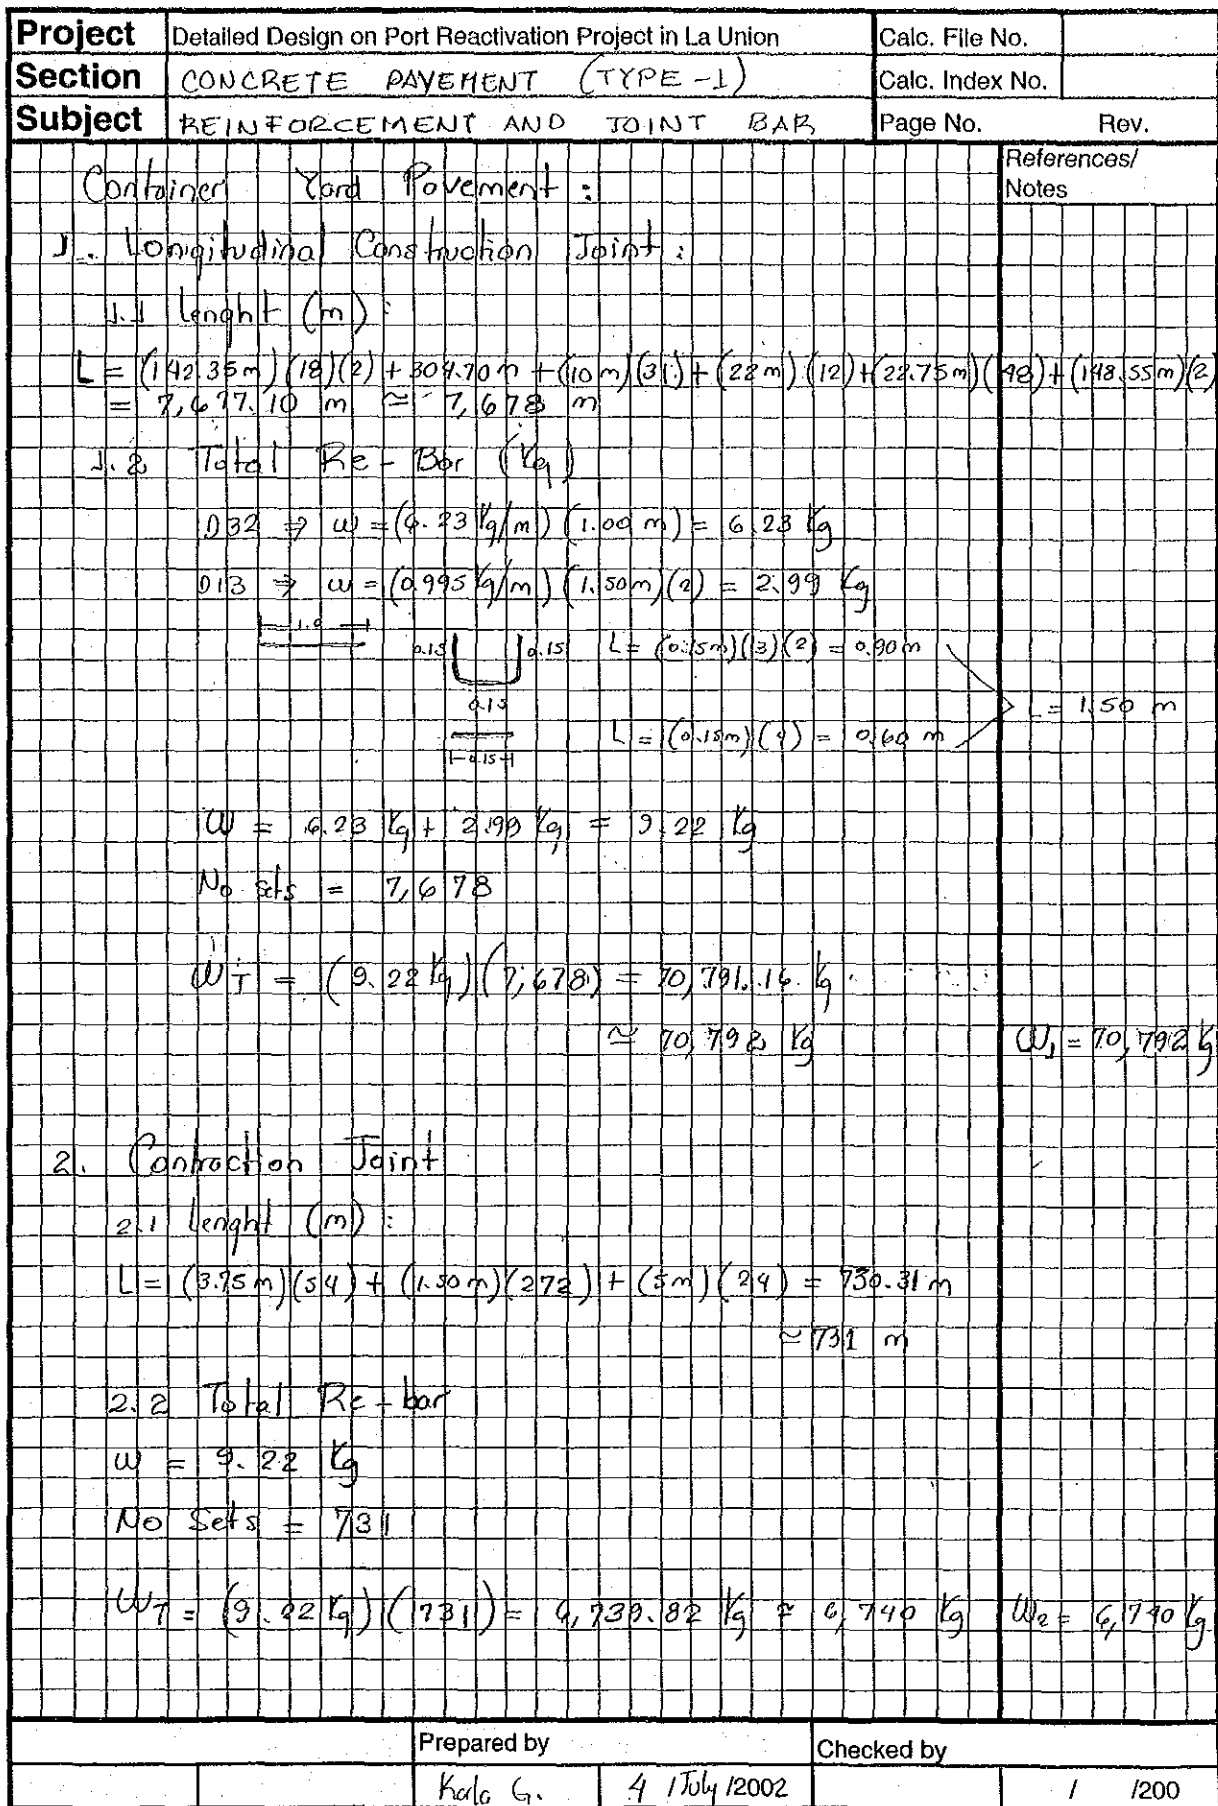 Project Detailed Design on Port Reactivation Project in La Union Calc. File No.
Section CONCRETE PAVEMENT (TYPE-1) Calc. Index No.
Subject REINFORCEMENT AND JOINT BAR Page No. Rev.
References/
Notes
Container Yard Pavement :
1. Longitudinal Construction Joint :
1.1 Lenght (m) :
L = (142.35m)(18)(2) + 304.70m + (10m)(31) + (22m)(12) + (22.75m)(48) + (148.55m)(2)
= 7,677.10 m ≃ 7,678 m
1.2 Total Re-Bar (Kg)
D32 ⇒ w = (6.23 Kg/m)(1.00 m) = 6.23 Kg
D13 ⇒ w = (0.995 Kg/m)(1.50m)(2) = 2.99 Kg
1.0
0.15 0.15 L = (0.15m)(3)(2) = 0.90m
0.15
L = 1.50 m
L = (0.15m)(4) = 0.60 m
0.15
W = 6.23 Kg + 2.99 Kg = 9.22 Kg
No sets = 7,678
WT = (9.22 Kg)(7,678) = 70,791.16 Kg
≃ 70,792 Kg W1 = 70,792 Kg
2. Contraction Joint
2.1 Lenght (m) :
L = (3.75m)(54) + (1.50m)(272) + (5m)(24) = 730.31 m
≃ 731 m
2.2 Total Re-bar
w = 9.22 Kg
No Sets = 731
WT = (9.22 Kg)(731) = 6,739.82 Kg ≃ 6,740 Kg W2 = 6,740 Kg
Prepared by Checked by
Karla G. 4 / July /2002 / /200